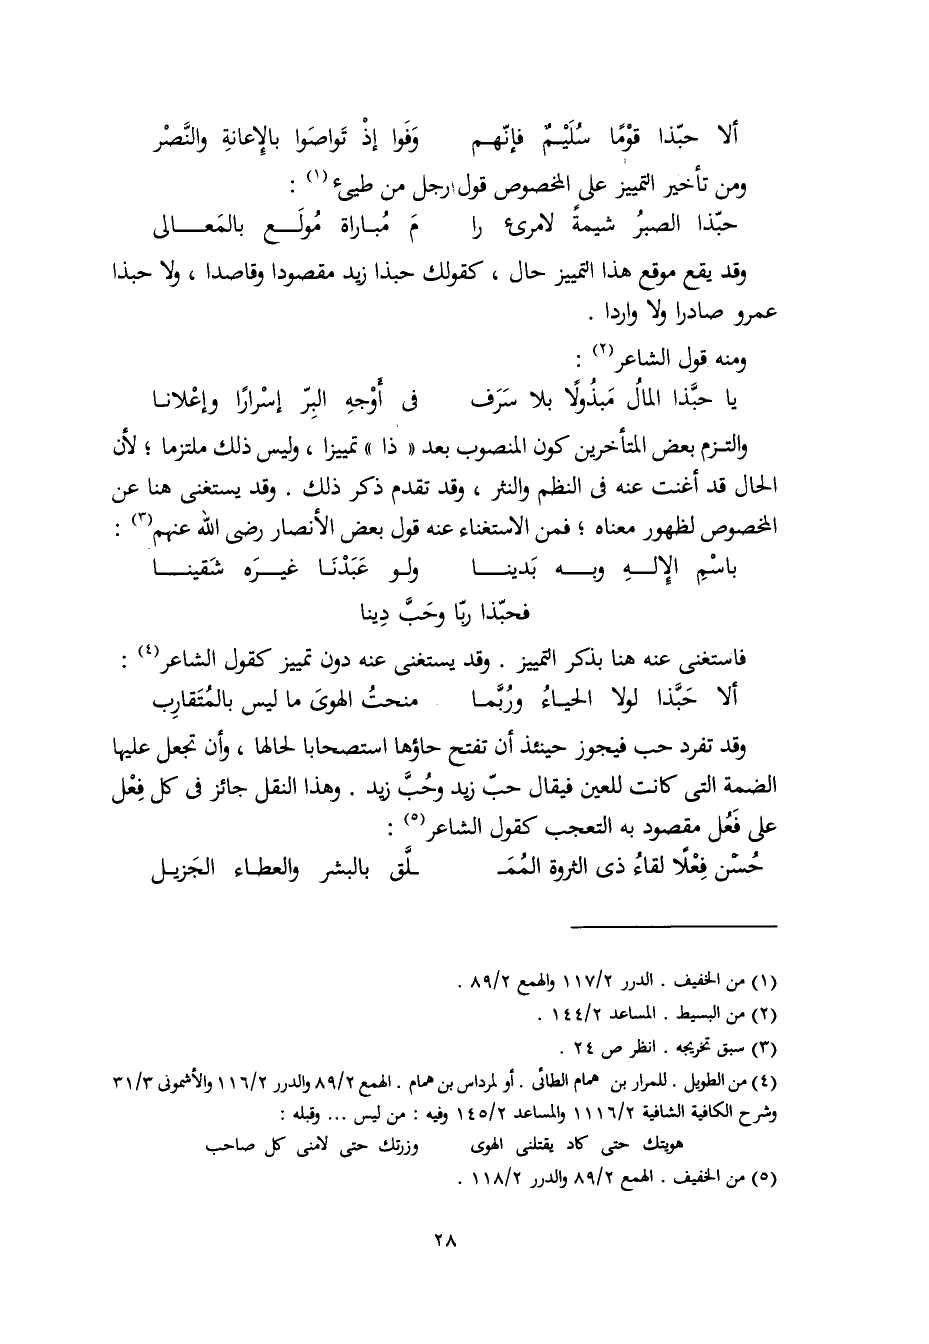 ألا حبّذا قوْمًا سُلَيْـمٌ فإنّهـم وَفَوا إذْ تَواصَوا بالإعانةِ والنَّصْرْ
ومن تأخير التمييز على المخصوص قول رجل من طيئ (١) :
حبّذا الصبرُ شيمةً لامرئ را مَ مُبـاراة مُولَـــع بالمَعـــالى
وقد يقع موقع هذا التمييز حال ، كقولك حبذا زيد مقصودا وقاصدا ، ولا حبذا
عمرو صادرا ولا واردا .
ومنه قول الشاعر (٢) :
يا حبَّذا المالُ مَبذُولًا بلا سَرَف فى أَوْجهِ البِرّ إسْرارًا وإعْلانـا
والتـزم بعض المتأخرين كون المنصوب بعد « ذا » تمييزا ، وليس ذلك ملتزما ؛ لأن
الحال قد أغنت عنه فى النظم والنثر ، وقد تقدم ذكر ذلك . وقد يستغنى هنا عن
المخصوص لظهور معناه ؛ فمن الاستغناء عنه قول بعض الأنصار رضى الله عنهم (٣) :
باسْمِ الإلــهِ وبــه بَدينــــا ولـو عَبَدْنَـا غيـرَه شَقينـــا
فحبّذا ربّا وحَبَّ دِينا
فاستغنى عنه هنا بذكر التمييز . وقد يستغنى عنه دون تمييز كقول الشاعر (٤) :
ألا حَبَّذا لولا الحياءُ ورُبَّمـا منحتُ الهوىَ ما ليس بالمُتَقارِب
وقد تفرد حب فيجوز حينئذ أن تفتح حاؤها استصحابا لحالها ، وأن تجعل عليها
الضمة التى كانت للعين فيقال حبّ زيد وحُبَّ زيد . وهذا النقل جائز فى كل فِعْل
على فَعُل مقصود به التعجب كقول الشاعر (٥) :
حُسْن فِعْلًا لقاءُ ذى الثروة المُمَـ ـلَّق بالبشر والعطاء الجَزيـل
(١) من الخفيف . الدرر ١١٧/٢ والهمع ٨٩/٢ .
(٢) من البسيط . المساعد ١٤٤/٢ .
(٣) سبق تخريجه . انظر ص ٢٤ .
(٤) من الطويل . للمرار بن همام الطائى . أو لمرداس بن همام . الهمع ٨٩/٢ والدرر ١١٦/٢ والأشمونى ٣١/٣
وشرح الكافية الشافية ١١١٦/٢ والمساعد ١٤٥/٢ وفيه : من ليس ... وقبله :
هويتك حتى كاد يقتلنى الهوى وزرتك حتى لامنى كل صاحب
(٥) من الخفيف . الهمع ٨٩/٢ والدرر ١١٨/٢ .
٢٨